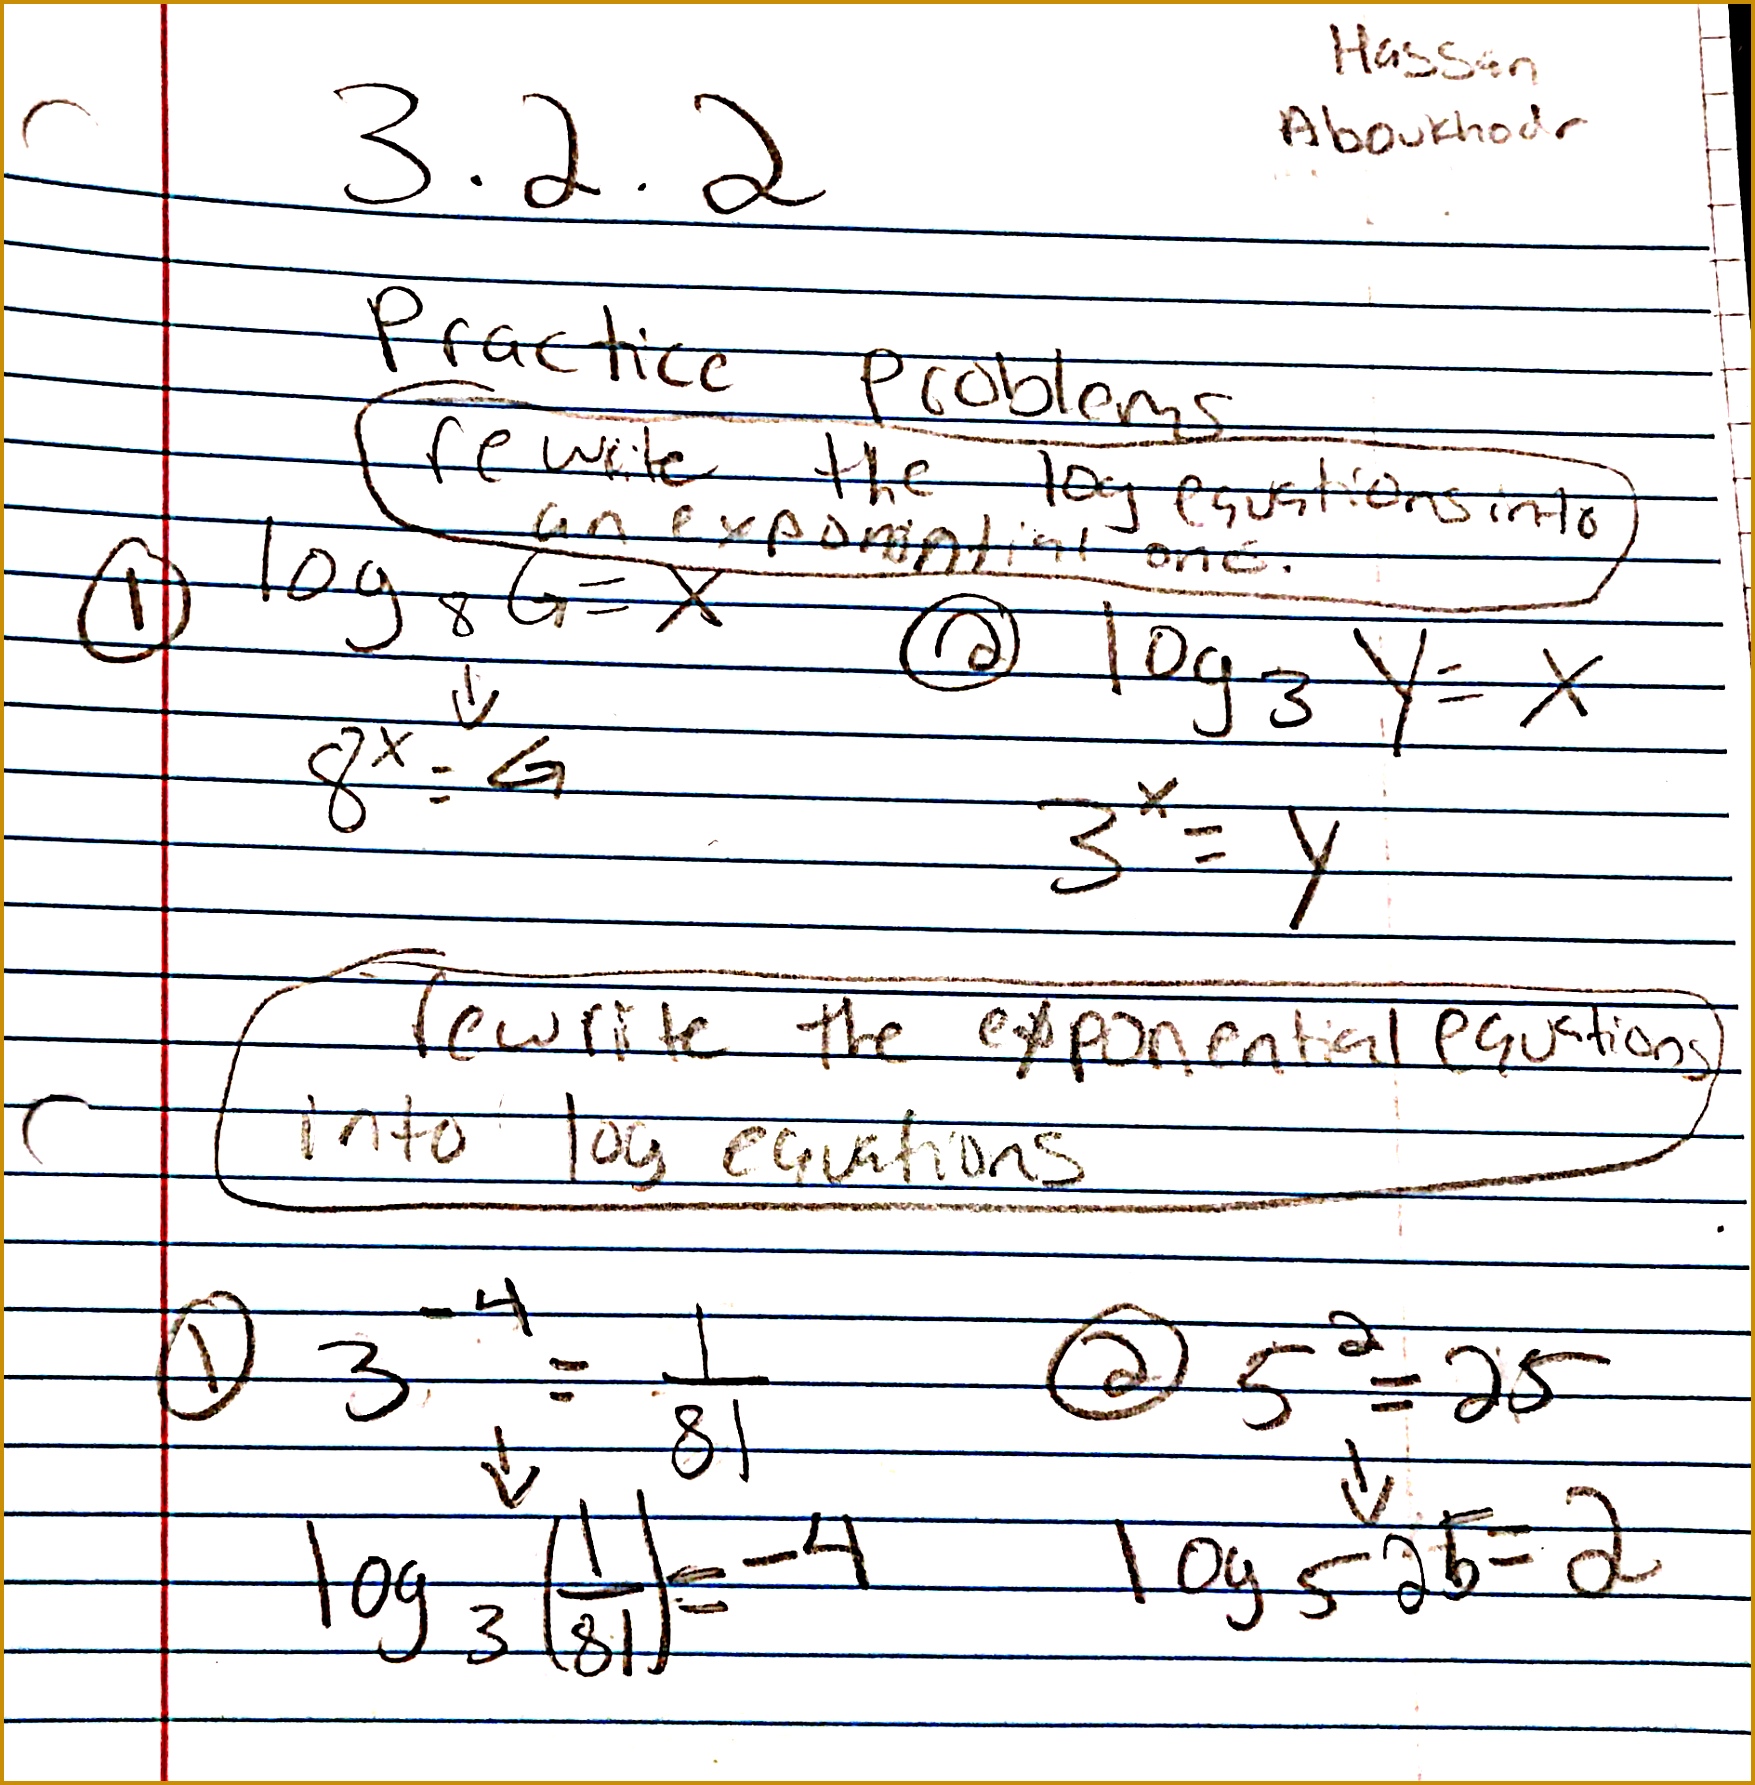 Hassan
Aboukhodr
3.2.2
Practice Problems
rewrite the log equations into
an exponential one.
① log₈ G = X
② log₃ Y = X
↓
8ˣ = G
3ˣ = y
rewrite the exponential equations
into log equations
① 3⁻⁴ = 1/81
② 5² = 25
↓ ↓
log₃ (1/81) = -4
log₅ 25 = 2